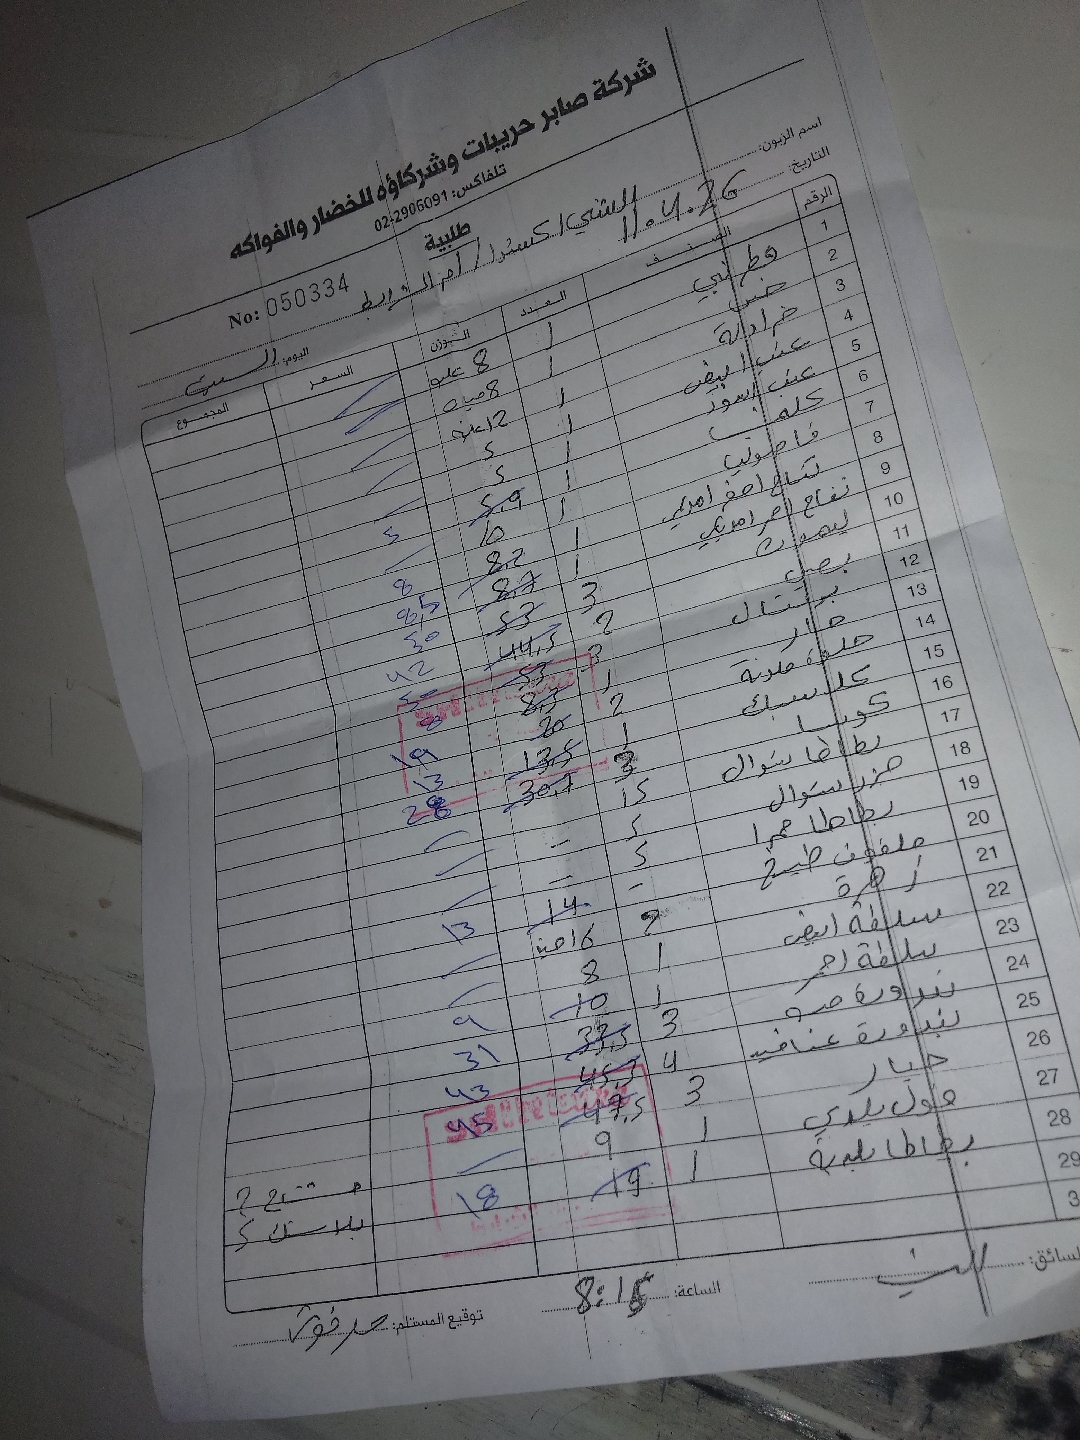 شركة صابر حريبات وشركاؤه للخضار والفواكه
تلفاكس: 02-2906091
طلبية
No: 050334
اسم الزبون: الشني اكسترا / ام الشرايط
التاريخ: 11.4.26
اليوم: السبت
الرقم الصنف العدد الوزن السعر المجموع
1 فطر 1 8 علبه
2 خس 1 8
3 1 12
4 عنب ابيض 1 5
5 عنب اسود 1 5
6 كلمنتينا 1 5,9 5
7 فاصوليا 1 10
8 تفاح اصفر امريكي 1 8,2 8
9 تفاح احمر امريكي 1 8,7 8,5
10 ليمون 3 53 50
11 بصل 2 44,5 42
12 برتقال 3 53 50
13 1 8,7 8
14 حلوة ملونة 2 20 19
15 1 13,5 13
16 كوسا 3 30,7 28
17 بطاطا شوال 15 -
18 جزر شوال 5 -
19 بطاطا حمرا 5 -
20 ملفوف طبيخ - 14 13
21 زهرة 2 16 حبة
22 سلطة ابيض 1 8
23 سلطة احمر 1 10 9
24 بندورة حب 3 33,5 31
25 بندورة عناقيد 4 45,7 43
26 خيار 3 47,5 45
27 فول بلدي 1 9
28 بطاطا بلدية 1 19 18
29
3
مشتاح 2
بلاستك 5
السائق:
الساعة: 8:15
توقيع المستلم: